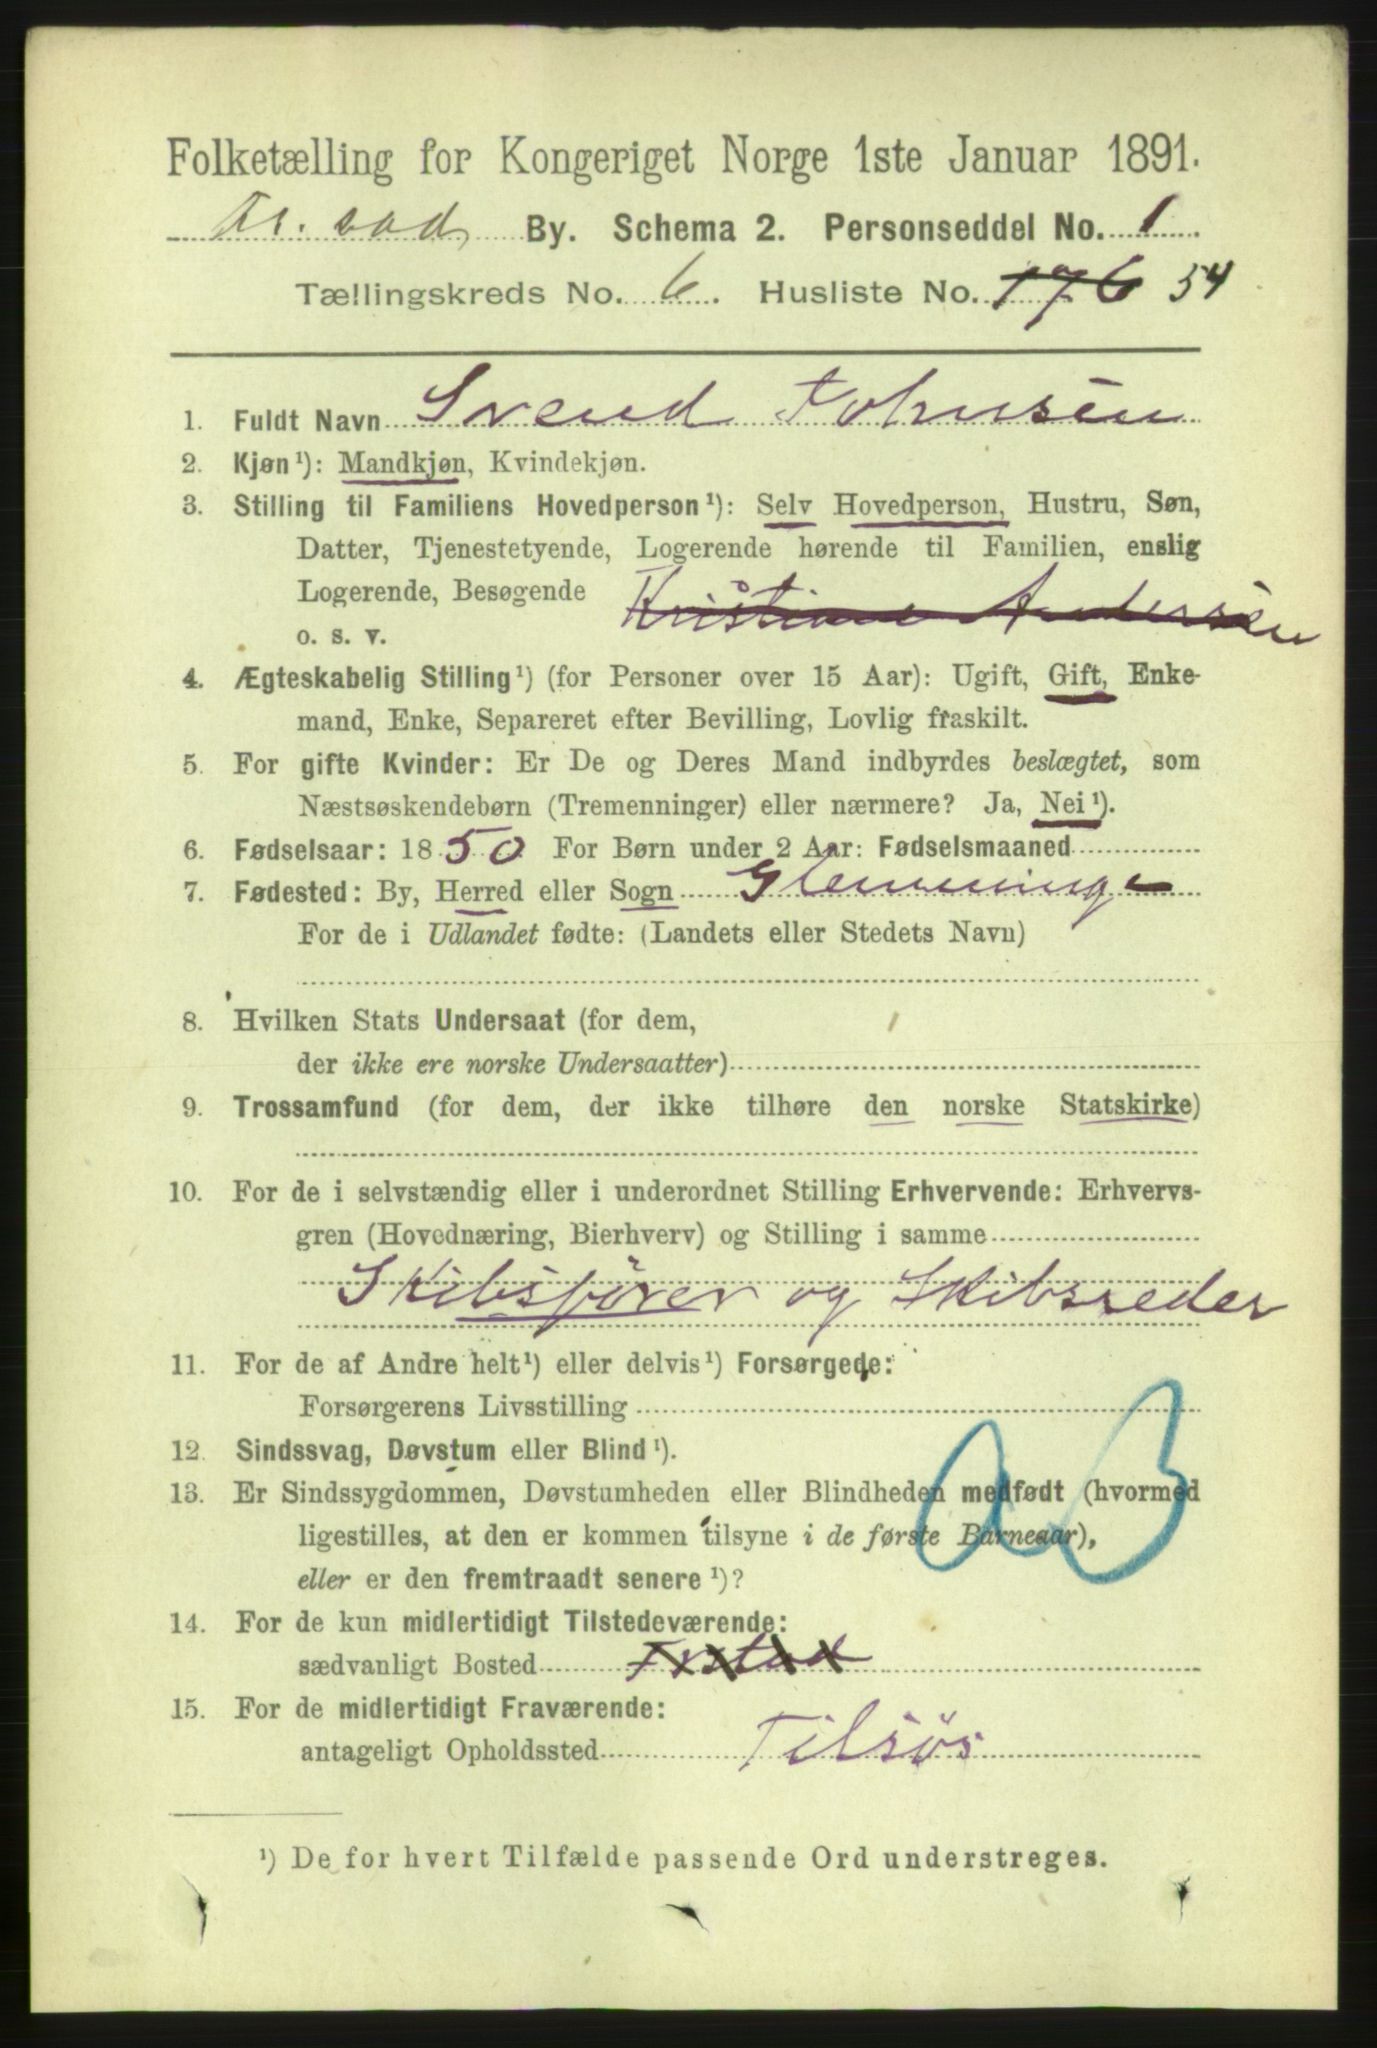 Folketælling for Kongeriget Norge 1ste Januar 1891.
Fr.stad By. Schema 2. Personseddel No. 1
Tællingskreds No. 6. Husliste No. 176 54
1. Fuldt Navn Svend Johnsen
2. Kjøn¹): Mandkjøn, Kvindekjøn.
3. Stilling til Familiens Hovedperson¹): Selv Hovedperson, Hustru, Søn,
Datter, Tjenestetyende, Logerende hørende til Familien, enslig
Logerende, Besøgende Kristiane Andersen
o. s. v.
4. Ægteskabelig Stilling¹) (for Personer over 15 Aar): Ugift, Gift, Enke-
mand, Enke, Separeret efter Bevilling, Lovlig fraskilt.
5. For gifte Kvinder: Er De og Deres Mand indbyrdes beslægtet, som
Næstsøskendebørn (Tremenninger) eller nærmere? Ja, Nei¹).
6. Fødselsaar: 1850 For Børn under 2 Aar: Fødselsmaaned
7. Fødested: By, Herred eller Sogn Glemminge
For de i Udlandet fødte: (Landets eller Stedets Navn)
8. Hvilken Stats Undersaat (for dem,
der ikke ere norske Undersaatter)
9. Trossamfund (for dem, der ikke tilhøre den norske Statskirke)
10. For de i selvstændig eller i underordnet Stilling Erhvervende: Erhvervs-
gren (Hovednæring, Bierhverv) og Stilling i samme
Skibsfører og Skibsreder
11. For de af Andre helt¹) eller delvis¹) Forsørgede:
Forsørgerens Livsstilling
12. Sindssvag, Døvstum eller Blind¹).
13. Er Sindssygdommen, Døvstumheden eller Blindheden medfødt (hvormed
ligestilles, at den er kommen tilsyne i de første Barneaar),
eller er den fremtraadt senere¹)?
14. For de kun midlertidigt Tilstedeværende:
sædvanligt Bosted Frstad
15. For de midlertidigt Fraværende:
antageligt Opholdssted Tilsøs
¹) De for hvert Tilfælde passende Ord understreges.